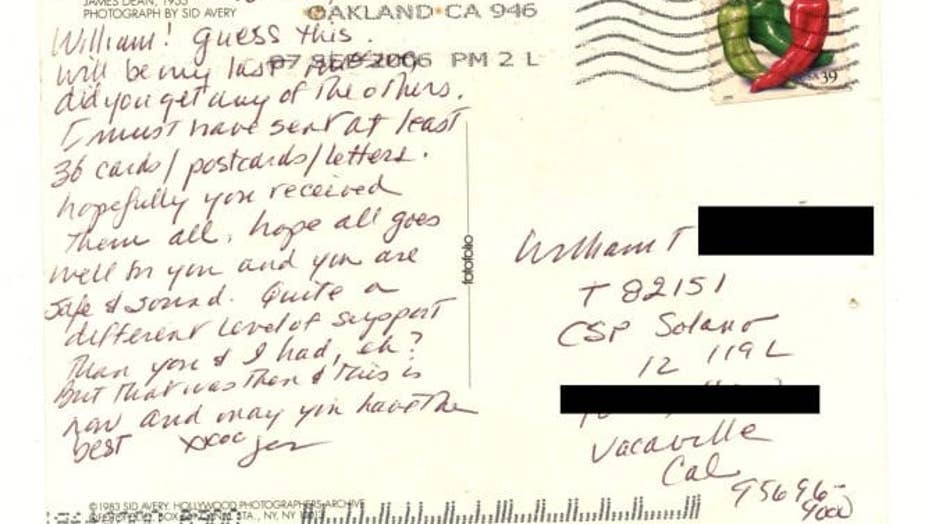 JAMES DEAN, 1955
PHOTOGRAPH BY SID AVERY
OAKLAND CA 946
07 SEP 2006 PM 2 L
39
William! guess this
will be my last
did you get any of the others.
I must have sent at least
36 cards/postcards/letters.
hopefully you received
them all, hope all goes
well for you and you are
safe & sound. Quite a
different level of support
than you & I had, eh?
But that was then & this is
now and may you have the
best xxoo Jen
fotofolio
William T
T 82151
CSP Solano
12 119 L
Vacaville
Cal
95696-
4000
©1983 SID AVERY. HOLLYWOOD PHOTOGRAPHERS ARCHIVE
BOX STA., NY, NY